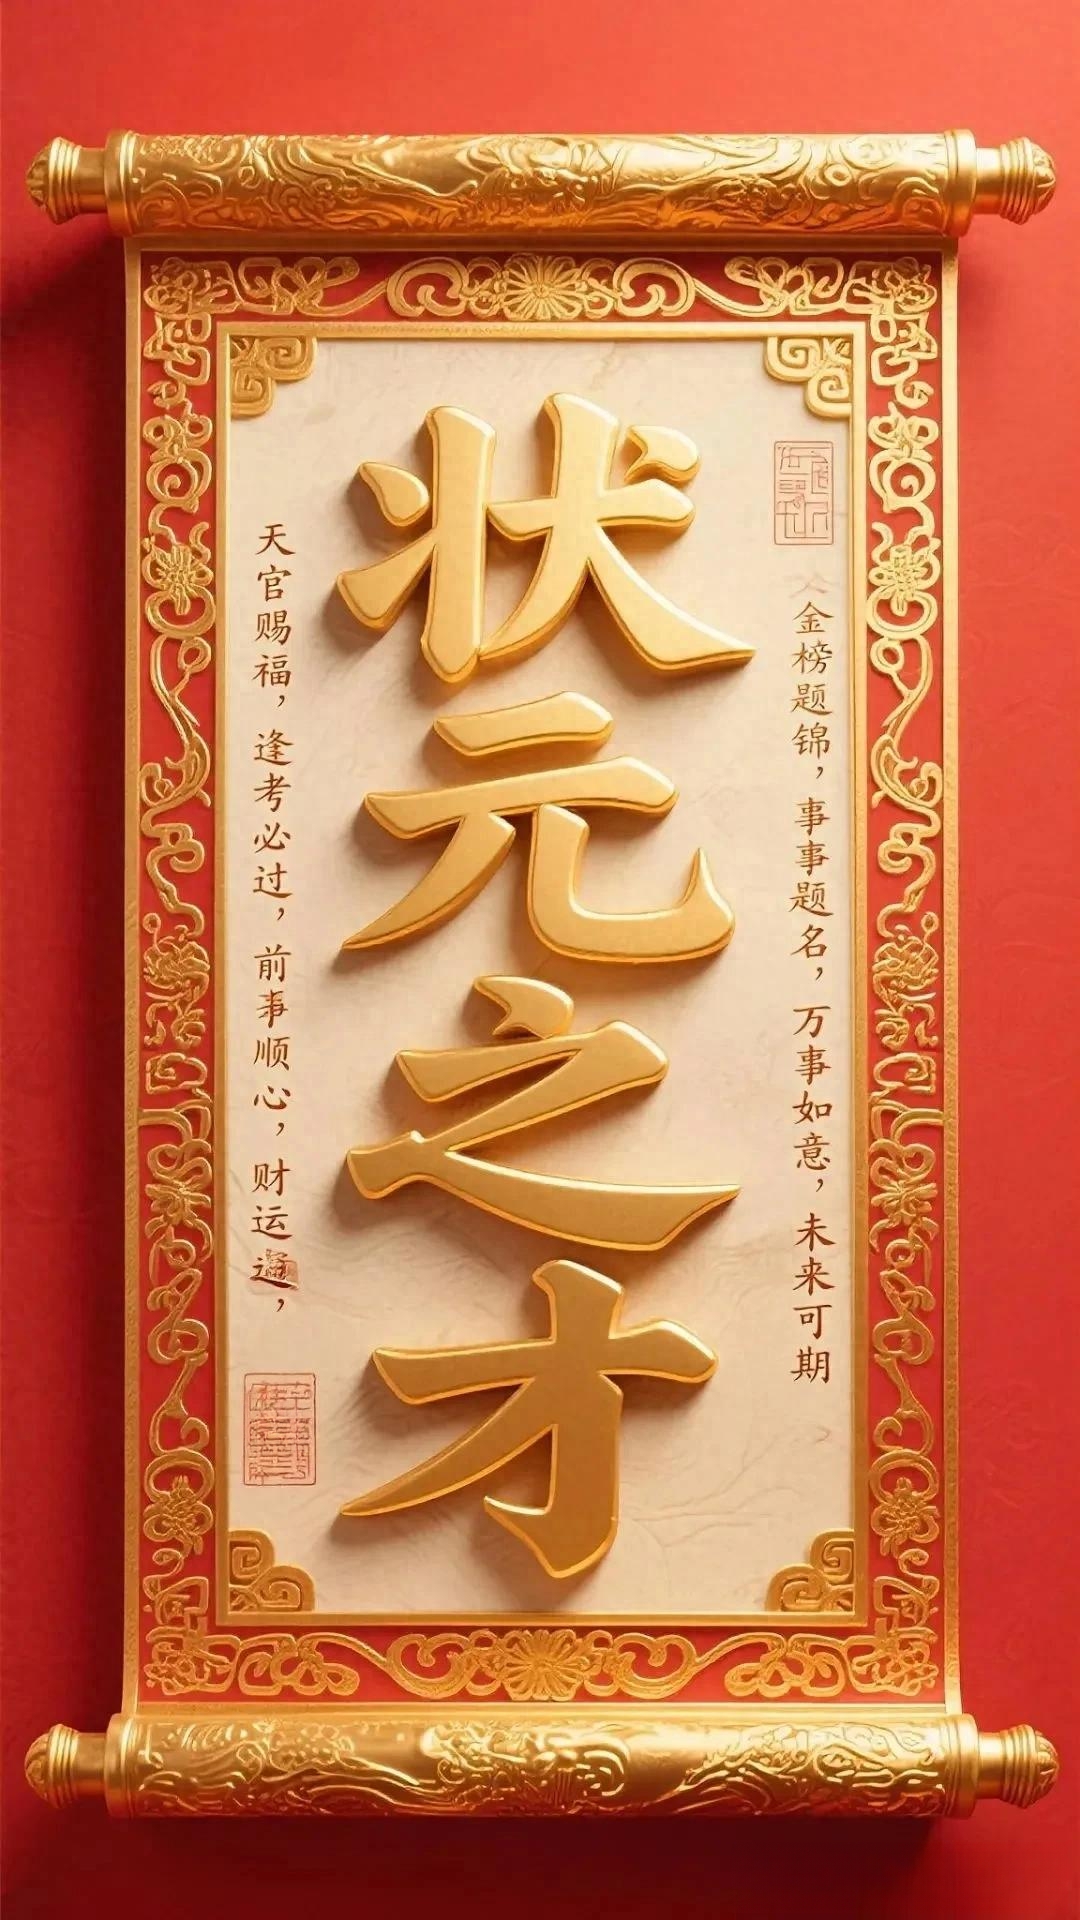 状元之才
金榜题锦，事事题名，万事如意，未来可期
天官赐福，逢考必过，前事顺心，财运，